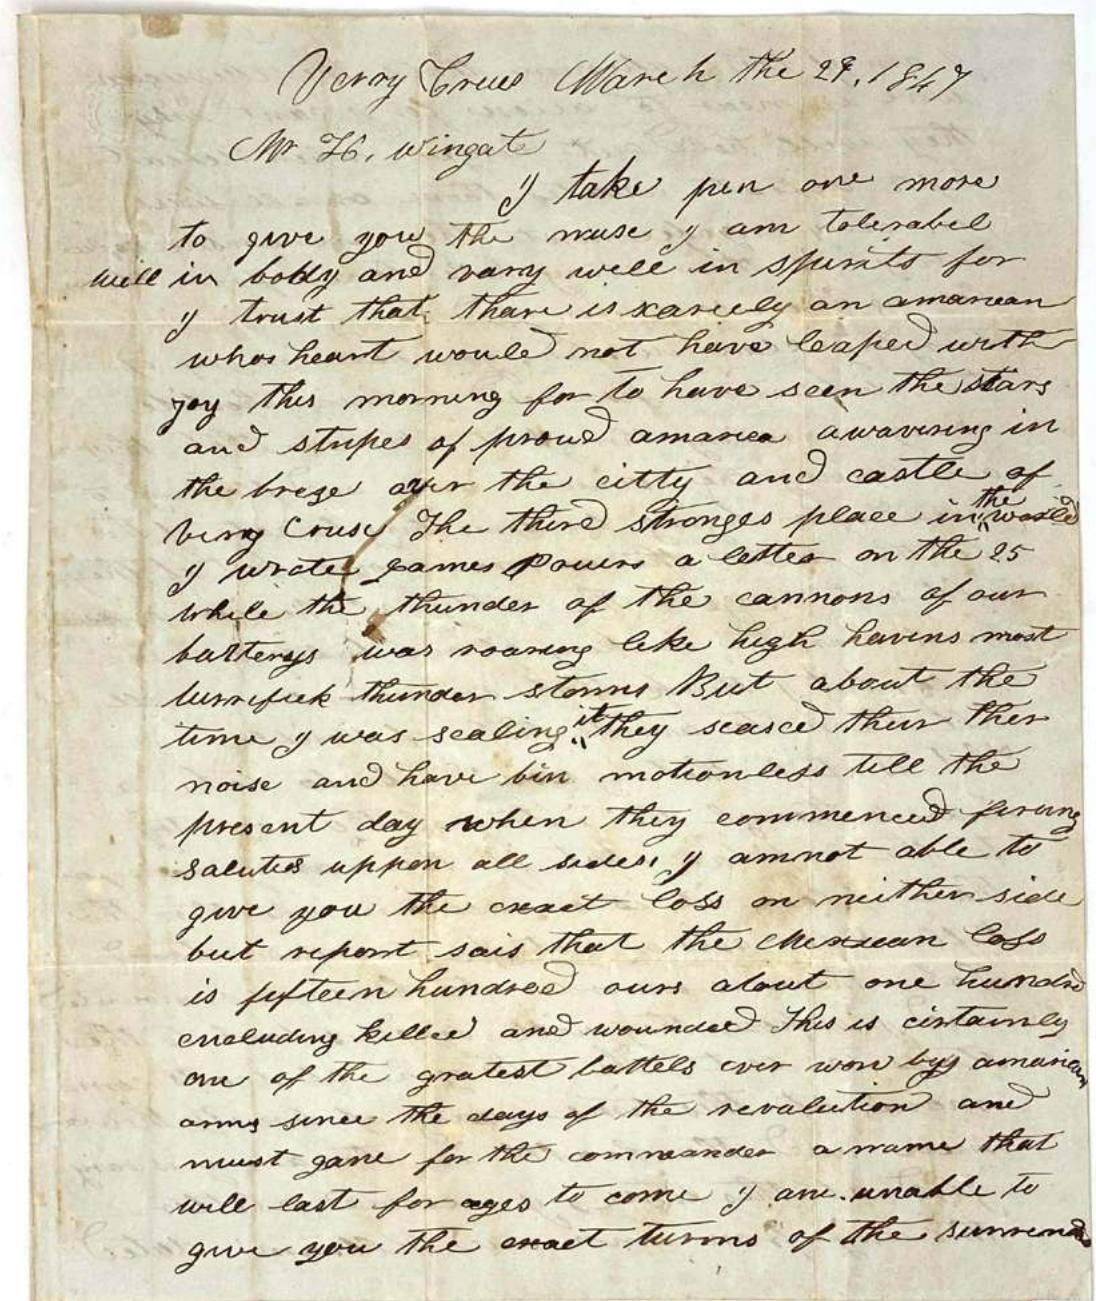 Verry Cruse March the 29. 1847
Mr H. Wingate
I take pen one more
to give you the nuse I am tolerabel
will in body and vary well in spirits for
I trust that thare is scarcely an amarican
whos heart would not have leaped with
joy this morning for to have seen the stars
and stripes of proud amarica awavering in
the breze over the citty and castle of
Verry Cruse The third stronges place in the world
I wrote James Powers a letter on the 25
while the thunder of the cannons of our
batterys was roaring like high havins most
turrifick thunder storms But about the
time I was sealing it they seased their ther
noise and have bin motionless till the
present day when they commenced firung
saluts uppon all sides, I amnot able to
give you the exact loss on neither side
but report sais that the Mexican loss
is fifteen hundred ours about one hundrd
encluding killed and wounded This is cirtainly
one of the gratest battels ever won by amarican
arms since the days of the revalution and
must gane for the commander a name that
will last for ages to come I am unable to
give you the exact turms of the surrender